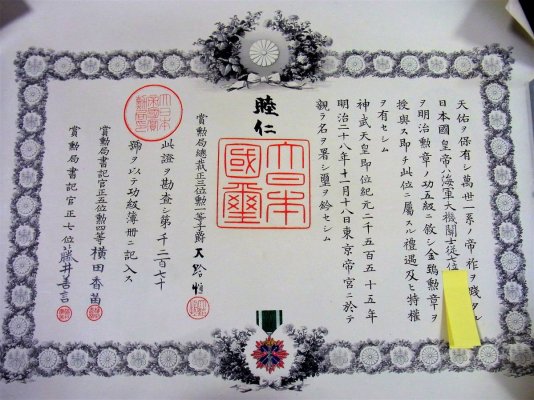 天佑ヲ保有シ萬世一系ノ帝祚ヲ踐タル
日本國皇帝ハ海軍大機關士從七位
ヲ明治勲章ノ功五級ニ敘シ金鵄勲章ヲ
授與ス即チ此位ニ屬スル禮遇及ヒ特權
ヲ有セシム
神武天皇即位紀元二千五百五十五年
明治二十八年十一月十八日東京帝宮ニ於テ
親ラ名ヲ署シ璽ヲ鈐セシム
睦仁
大日本國璽
賞勲局總裁正三位勲一等子爵大給恒
此證ヲ勘査シ第千二百七十
號ヲ以テ功級簿冊ニ記入ス
賞勲局書記官正五位勲四等横田香苗
賞勲局書記官正七位藤井善言